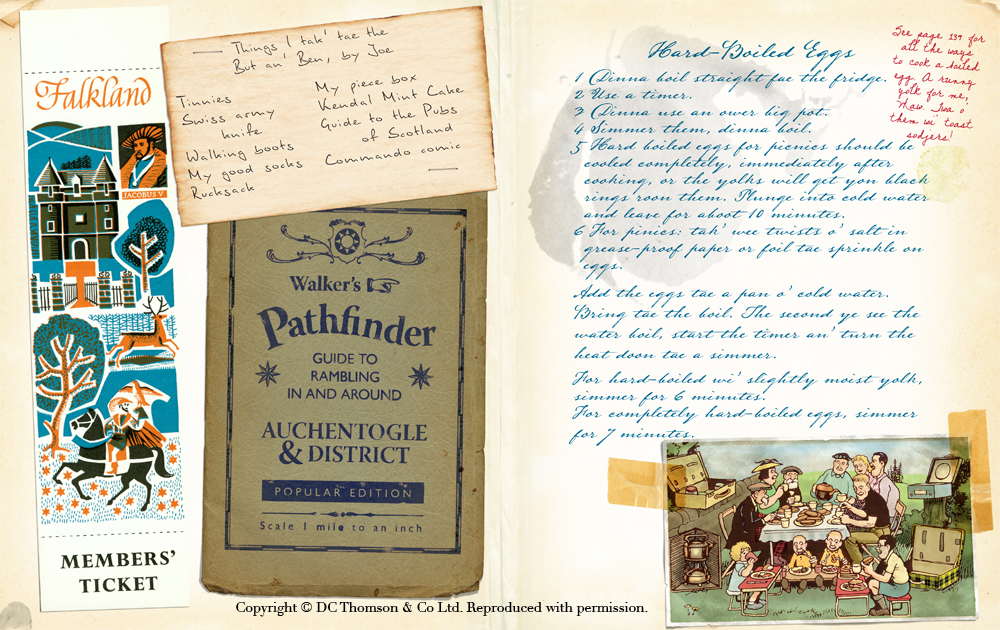 Falkland
JACOBUS V
MEMBERS'
TICKET
— Things I tak' tae the
But an' Ben, by Joe
Tinnies
Swiss army
knife
Walking boots
My good socks
Rucksack
My piece box
Kendal Mint Cake
Guide to the Pubs
of Scotland
Commando comic
—
Walker's
Pathfinder
GUIDE TO
RAMBLING
IN AND AROUND
AUCHENTOGLE
& DISTRICT
POPULAR EDITION
Scale 1 mile to an inch
Hard-Boiled Eggs
1 Dinna boil straight fae the fridge.
2 Use a timer.
3 Dinna use an ower big pot.
4 Simmer them, dinna boil.
5 Hard boiled eggs for picnics should be
cooled completely, immediately after
cooking, or the yolks will get yon black
rings roon them. Plunge into cold water
and leave for aboot 10 minutes.
6 For pinics: tak' wee twists o' salt in
grease-proof paper or foil tae sprinkle on
eggs.
Add the eggs tae a pan o' cold water.
Bring tae the boil. The second ye see the
water boil, start the timer an' turn the
heat doon tae a simmer.
For hard-boiled wi' slightly moist yolk,
simmer for 6 minutes.
For completely hard-boiled eggs, simmer
for 7 minutes.
See page 139 for
all the ways
to cook a boiled
egg. A runny
yolk for me,
Maw. Twa o'
them wi' toast
sodjers!
Copyright © DC Thomson & Co Ltd. Reproduced with permission.